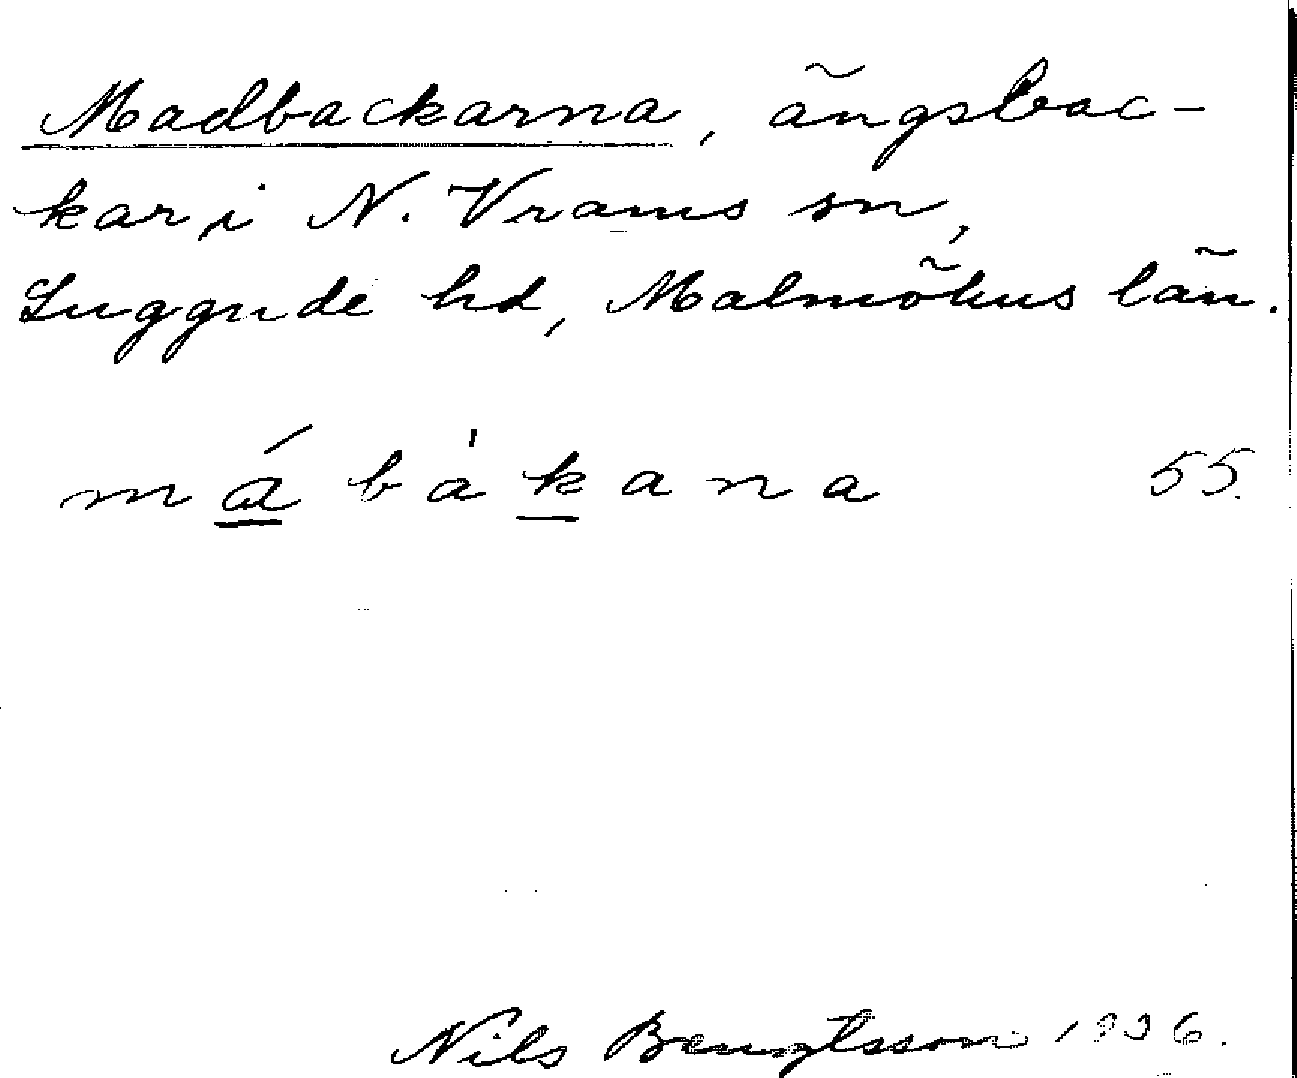 Madbackarna, ängsbac-
kar i N. Vrams sn,
Luggude hd, Malmöhus län.
má̱bàḵana 55.
Nils Bengtsson 1936.